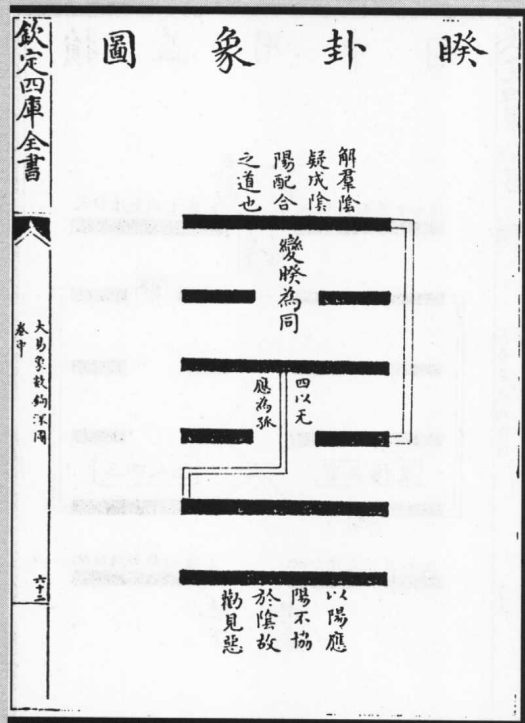 睽卦象圖
解羣陰
疑成陰
陽配合
之道也
變睽為同
四以无
應為孤
以陽應
陽不協
於陰故
勸見惡
欽定四庫全書
大易象數鈎深圖
卷中
六十三